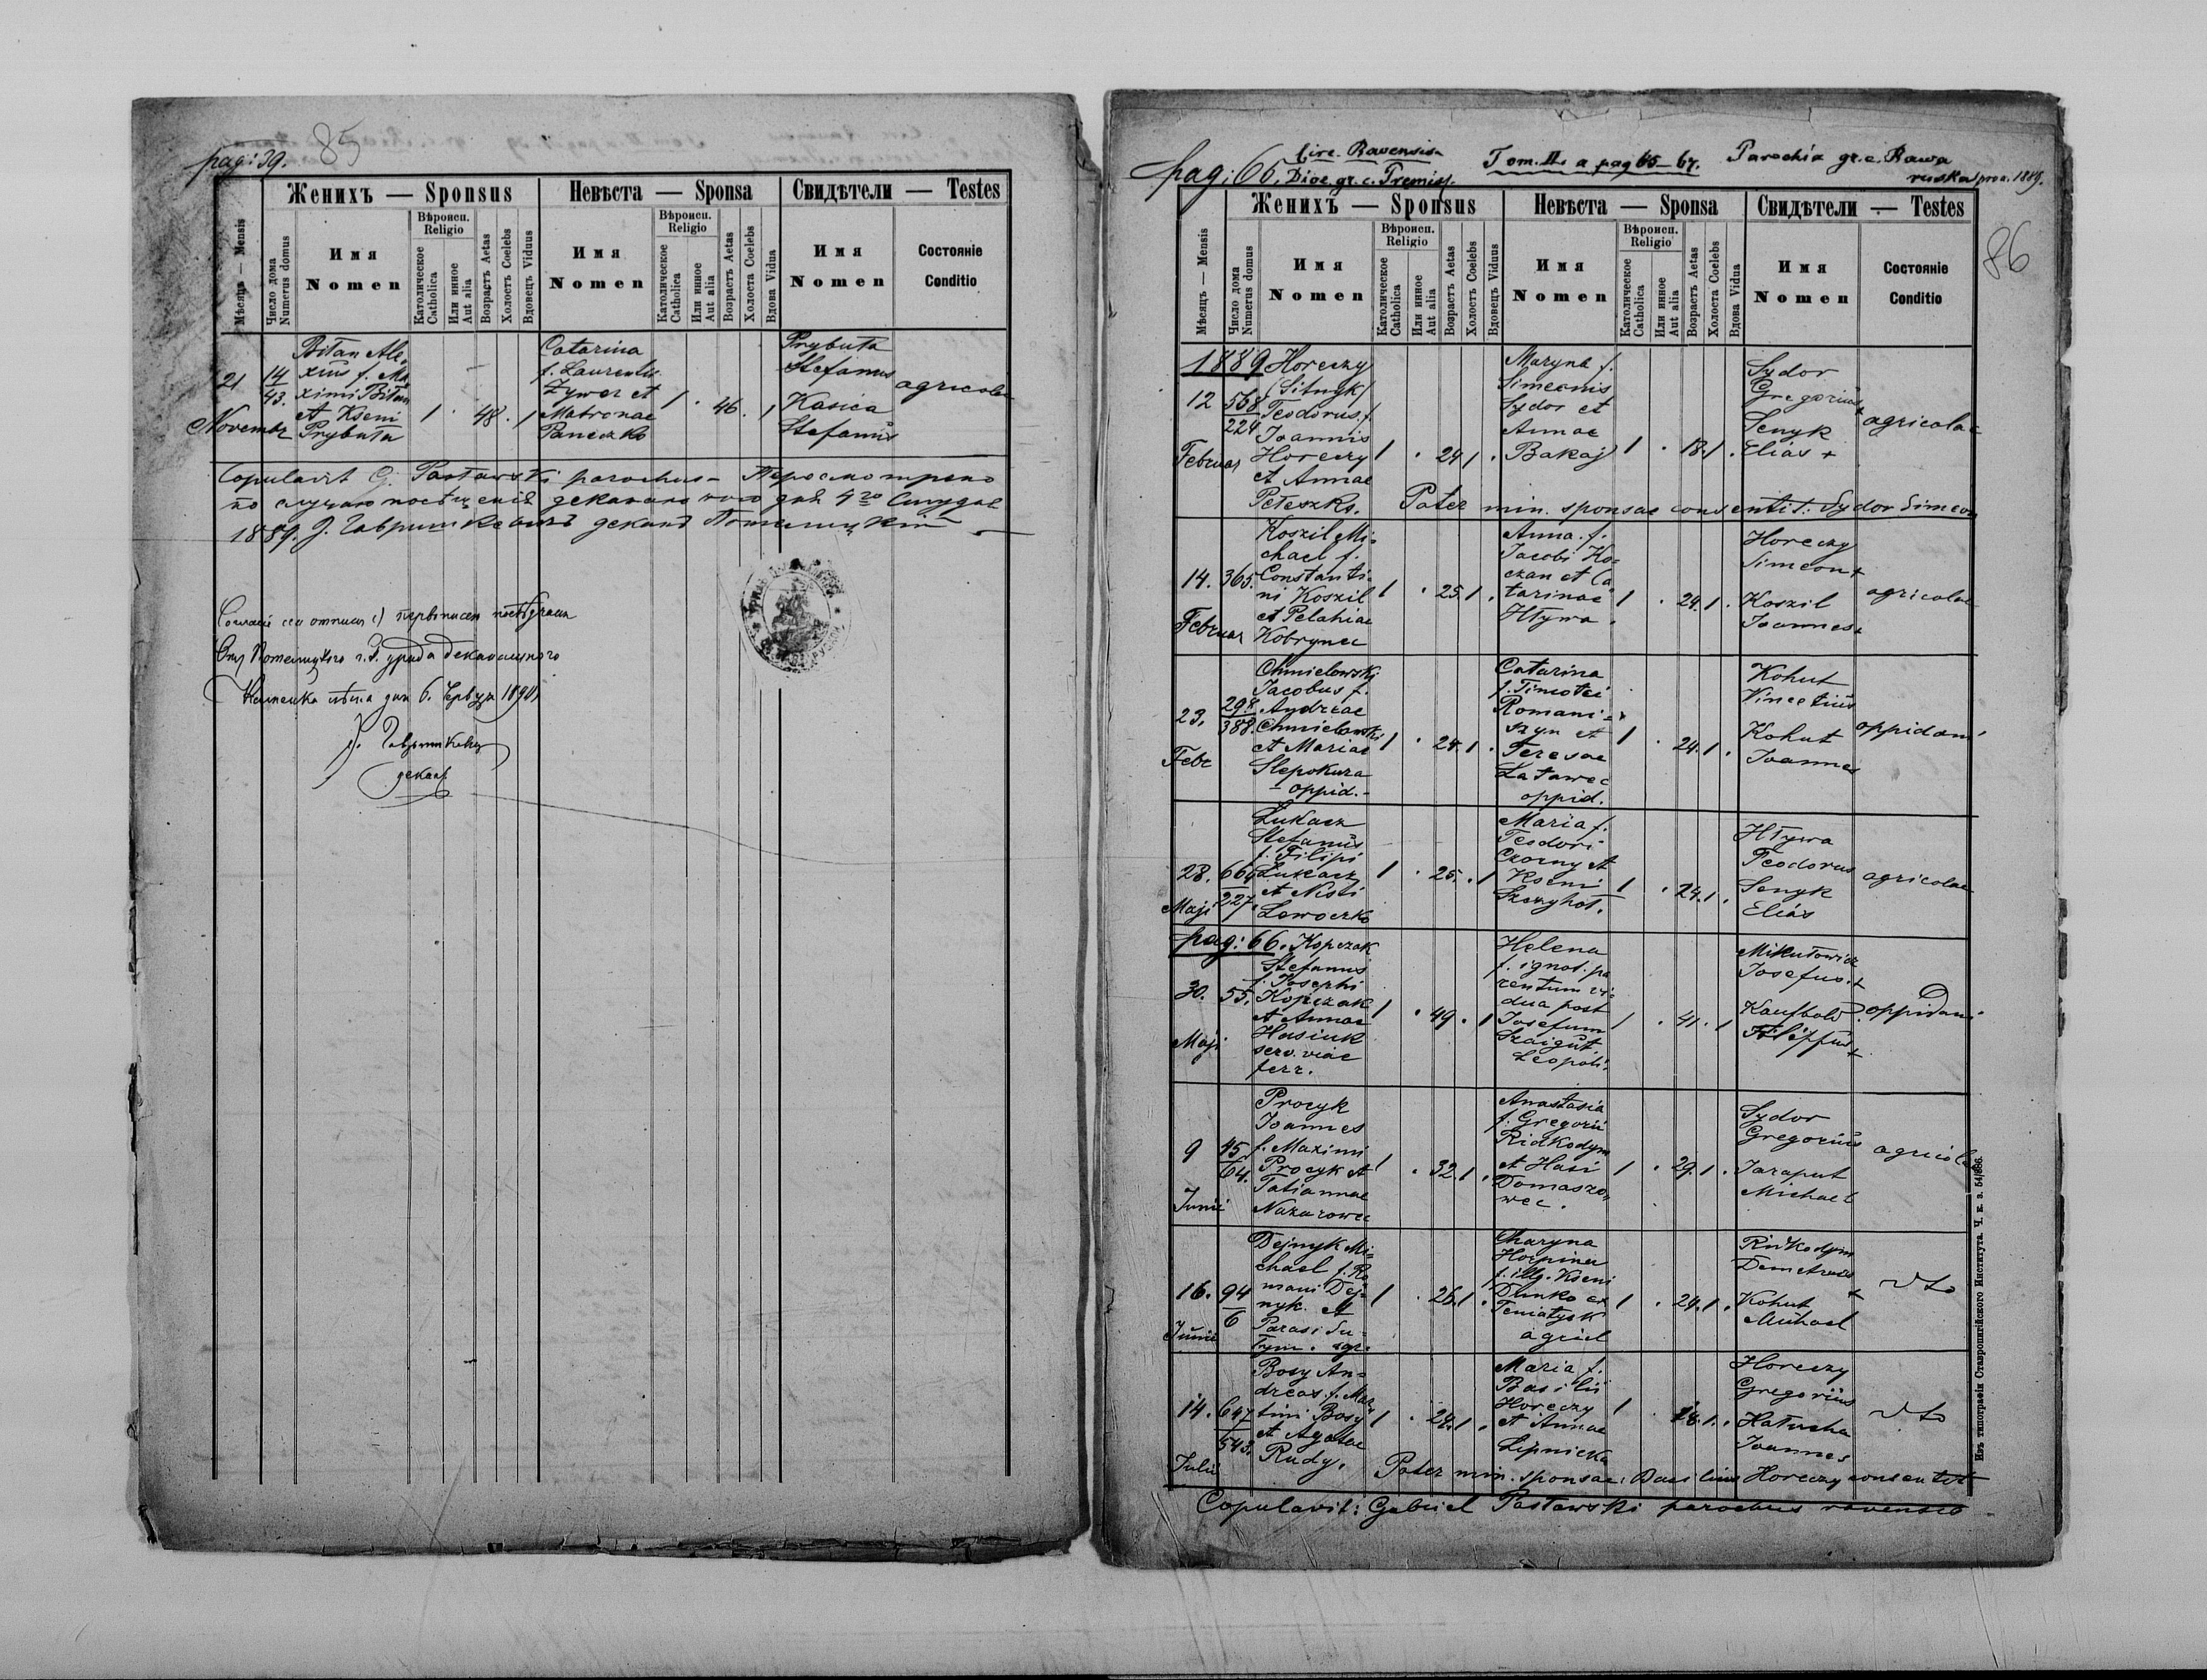 pag: 39.
85
Женихъ — Sponsus
Невѣста — Sponsa
Свидѣтели — Testes
Мѣсяцъ — Mensis
Число дома
Numerus domus
Имя
Nomen
Вѣроисп.
Religio
Католическое
Catholica
Или инное
Aut alia
Возрастъ Aetas
Холостъ Coelebs
Вдовецъ Viduus
Имя
Nomen
Вѣроисп.
Religio
Католическое
Catholica
Или инное
Aut alia
Возрастъ Aetas
Холоста Coelebs
Вдова Vidua
Имя
Nomen
Состояніе
Conditio
21
Novembr
14
43.
Bitan Ale
xius f. Ma
ximi Bitan
et Kseni
Prybuła
1 . 48 . 1
Catarina
f. Laurentii
Zywer et
Matronae
Paneczko
1 . 46 . 1
Prybuła
Stefanus
Kasica
Stefanus
agricolae
Copulavit G. Pasławski parochus - Пересмотрено
по случаю посѣщенія деканального дня 4го Студня
1889. деканъ
1) Horeczy
дня 6. 1890
декан
pag: 66.
Circ. Ravensis
Dioc. gr. c. Premisl.
Tom. II. a pag 65-67.
Parochia gr. c. Rawa
ruska pro a. 1889.
86
Женихъ — Sponsus
Невѣста — Sponsa
Свидѣтели — Testes
Мѣсяцъ — Mensis
Число дома
Numerus domus
Имя
Nomen
Вѣроисп.
Religio
Католическое
Catholica
Или инное
Aut alia
Возрастъ Aetas
Холостъ Coelebs
Вдовецъ Viduus
Имя
Nomen
Вѣроисп.
Religio
Католическое
Catholica
Или инное
Aut alia
Возрастъ Aetas
Холоста Coelebs
Вдова Vidua
Имя
Nomen
Состояніе
Conditio
1889
12
Februar
568
224
Horeczy
(Sitnyk)
Teodorus f.
Joannis
Horeczy
et Annae
Peteszko.
1 . 24 1 .
Maryna f.
Simeonis
Sydor et
Annae
Bakaj
1 . 18. 1 .
Sydor
Gregorius +
Senyk
Elias +
agricolae
Pater min. sponsae consentit: Sydor Simeon
14.
Februar
365.
Koszil Mi-
chael f.
Constanti-
ni Koszil
et Pelahiae
Kobrynec
1 . 25. 1 .
Anna f.
Jacobi Ko-
czan et Ca
tarinae
Hływa
1 . 24. 1 .
Horeczy
Simeon +
Koszil
Joannes +
agricolae
23.
Febr
298
388.
Chmielowski
Jacobus f.
Andreae
Chmielowski
et Mariae
Slepokura
- oppid. -
1 . 24. 1 .
Catarina
f. Timotei
Romani-
szyn et
Teresae
Latawec
oppid.
1 . 24. 1 .
Kohut
Vincetius
Kohut
Joannes
oppidani
28.
Maji
664
227.
Lukacz
Stefanus
f. Filipi
Lukacz
et Nasti
Lewoczko
1 . 25. . 1
Maria f.
Teodori
Czorny et
Kseni
Szczyhoł.
1 . 24. 1 .
Hływa
Teodorus
Senyk
Elias
agricolae
pag: 66.
30.
Maji
55.
Kopczak
Stefanus
f. Josephi
Kopczak
et Annae
Hasiuk
serv. viae
ferr.
1 . 49 . 1
Helena
f. ignot. pa
rentum vi-
dua post
Josefum
Szaigut
Leopoli.
1 . 41 . 1
Mikułowicz
Josefus. +
Kaufbold
Filippus +
oppidani
9
Junii
45
64.
Procyk
Joannes
f. Maximi
Procyk et
Tatiannae
Nazarowec
1 . 32. 1 .
Anastasia
f. Gregorii
Ridkodym
et Hasi
Domaszo-
wec.
1 . 29. 1 .
Sydor
Gregorius
Taraput
Michael
agricolae
16.
Junii
94
6
Dejnyk Mi-
chael f. Ro
mani Dej-
nyk. et
Parasi Su-
łym. agr.
1 . 26. 1 .
Maryna
Horpina
f. illg. Kseni
Dunko ex
Teniatysk
agricl
1 . 24. 1 .
Ridkodym
Demetrius
+
Kohut
Michael
dto
14.
Julii
647
543.
Bosy An-
dreas f. Mar
tini Bosy
et Agatae
Rudy.
1 . 24. 1 .
Maria f.
Basilii
Horeczy
et Annae
Lipnicka
1 . 18. 1 .
Horeczy
Gregorius
Hałucha
Joannes
dto
Pater min. sponsae: Basilius Horeczy consentit
Copulavit: Gabriel Pasławski parochus ravensis
Изъ типографіи Ставропигійского Института. Ч. к. з. 54/886.